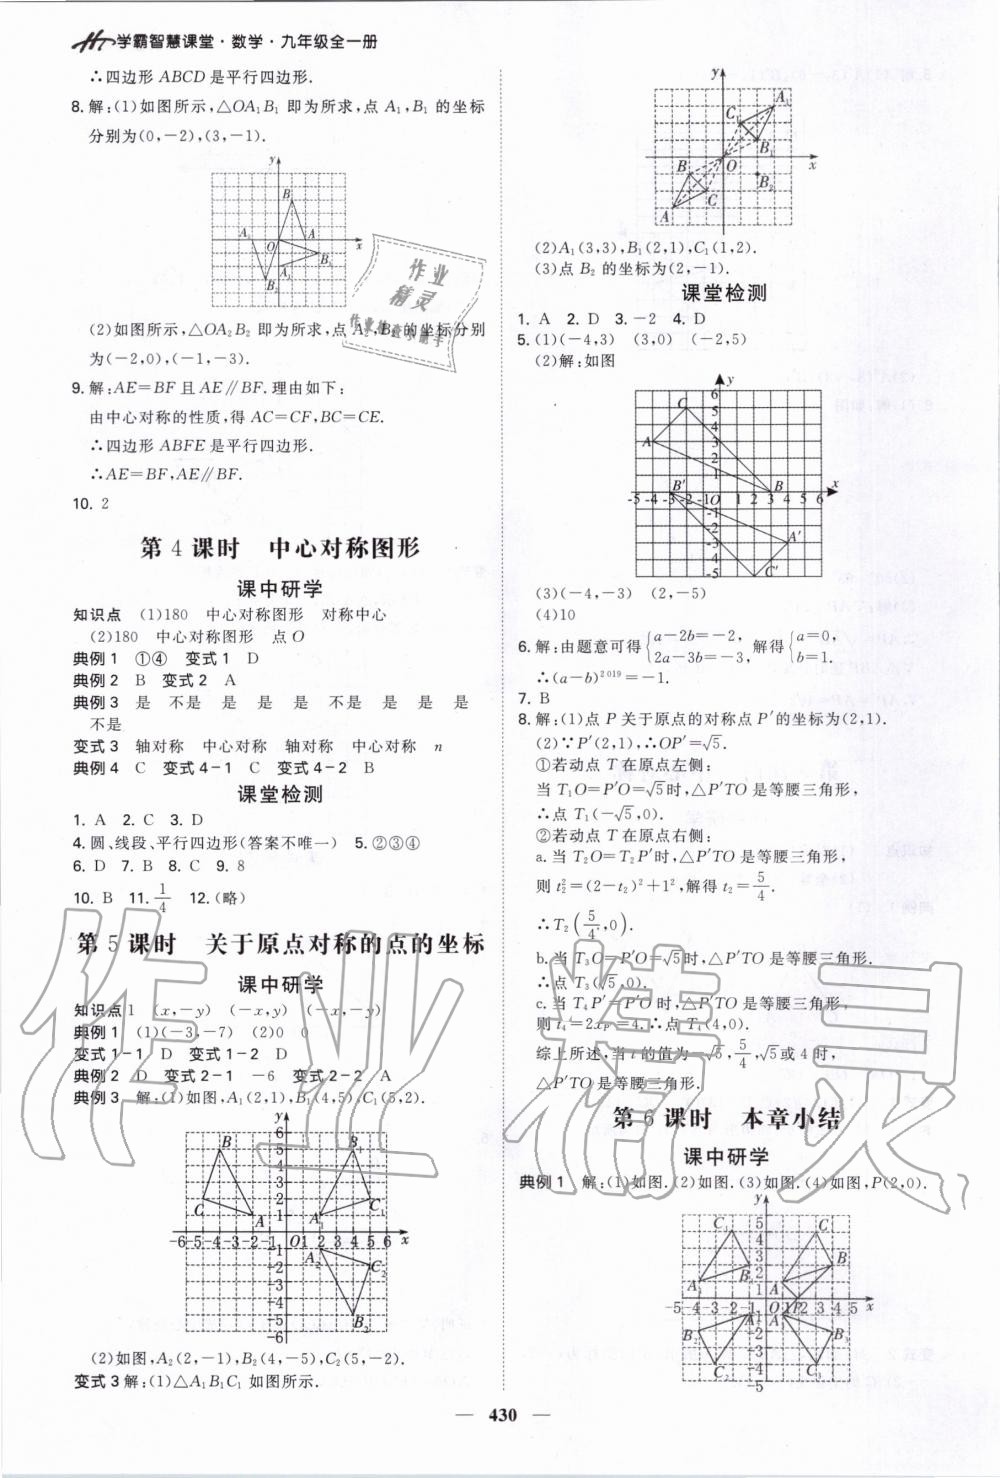 学霸智慧课堂·数学·九年级全一册
∴四边形 ABCD 是平行四边形.
8. 解:(1)如图所示,△OA₁B₁ 即为所求,点 A₁,B₁ 的坐标
分别为(0,-2),(3,-1).
y
B
A₂ O A x
B₁
A₁
B₂
(2)如图所示,△OA₂B₂ 即为所求,点 A₂,B₂ 的坐标分别
为(-2,0),(-1,-3).
9. 解:AE=BF 且 AE∥BF.理由如下:
由中心对称的性质,得 AC=CF,BC=CE.
∴四边形 ABFE 是平行四边形.
∴AE=BF,AE∥BF.
10. 2
第 4 课时 中心对称图形
课中研学
知识点 (1)180 中心对称图形 对称中心
(2)180 中心对称图形 点 O
典例 1 ①④ 变式 1 D
典例 2 B 变式 2 A
典例 3 是 不是 是 是 是 不是 是 是 是
不是
变式 3 轴对称 中心对称 轴对称 中心对称 n
典例 4 C 变式 4-1 C 变式 4-2 B
课堂检测
1. A 2. C 3. D
4. 圆、线段、平行四边形(答案不唯一) 5. ②③④
6. D 7. B 8. C 9. 8
10. B 11. 1/4 12. (略)
第 5 课时 关于原点对称的点的坐标
课中研学
知识点 1 (x,-y) (-x,y) (-x,-y)
典例 1 (1)(-3,-7) (2)0 0
变式 1-1 D 变式 1-2 D
典例 2 D 变式 2-1 -6 变式 2-2 A
典例 3 解:(1)如图,A₁(2,1),B₁(4,5),C₁(5,2).
y
6
B 5 B₁
4
3
C 2 C₁
A 1 A₁
-6-5-4-3-2-1 O 1 2 3 4 5 6 x
-1 A₂
-2 C₂
-3
-4
-5 B₂
-6
(2)如图,A₂(2,-1),B₂(4,-5),C₂(5,-2).
变式 3 解:(1)△A₁B₁C₁ 如图所示.
y
A₁
C₁
B₁
B O x
B₂
C
A
(2)A₁(3,3),B₁(2,1),C₁(1,2).
(3)点 B₂ 的坐标为(2,-1).
课堂检测
1. A 2. D 3. -2 4. D
5. (1)(-4,3) (3,0) (-2,5)
(2)解:如图
y
6
C 5
4
A 3
2
1
B′ B x
-5-4-3-2-1O 1 2 3 4 5 6
-1
-2
-3 A′
-4
-5 C′
(3)(-4,-3) (2,-5)
(4)10
6. 解:由题意可得{a-2b=-2, 2a-3b=-3, 解得{a=0, b=1.
∴(a-b)²⁰¹⁹=-1.
7. B
8. 解:(1)点 P 关于原点的对称点 P′的坐标为(2,1).
(2)∵P′(2,1),∴OP′=√5.
①若动点 T 在原点左侧:
当 T₁O=P′O=√5时,△P′TO 是等腰三角形,
∴点 T₁(-√5,0).
②若动点 T 在原点右侧:
a. 当 T₂O=T₂P′时,△P′TO 是等腰三角形,
则 t₂²=(2-t₂)²+1²,解得 t₂=5/4.
∴T₂(5/4,0).
b. 当 T₃O=P′O=√5时,△P′TO 是等腰三角形.
∴点 T₃(√5,0).
c. 当 T₄P′=P′O 时,△P′TO 是等腰三角形,
则 t₄=2xₚ′=4.∴点 T₄(4,0).
综上所述,当 t 的值为-√5,5/4,√5或 4 时,
△P′TO 是等腰三角形.
第 6 课时 本章小结
课中研学
典例 1 解:(1)如图.(2)如图.(3)如图.(4)如图,P(2,0).
y
C₁ 5 C
4
3
B₁ 2 B
A₁ 1 A
-5-4-3-2-1 O 1 P 3 4 5 x
-1
B₂ -2 B₃
-3
C₂ C₃
-5
430
作业精灵
作业检查小帮手
作业精灵